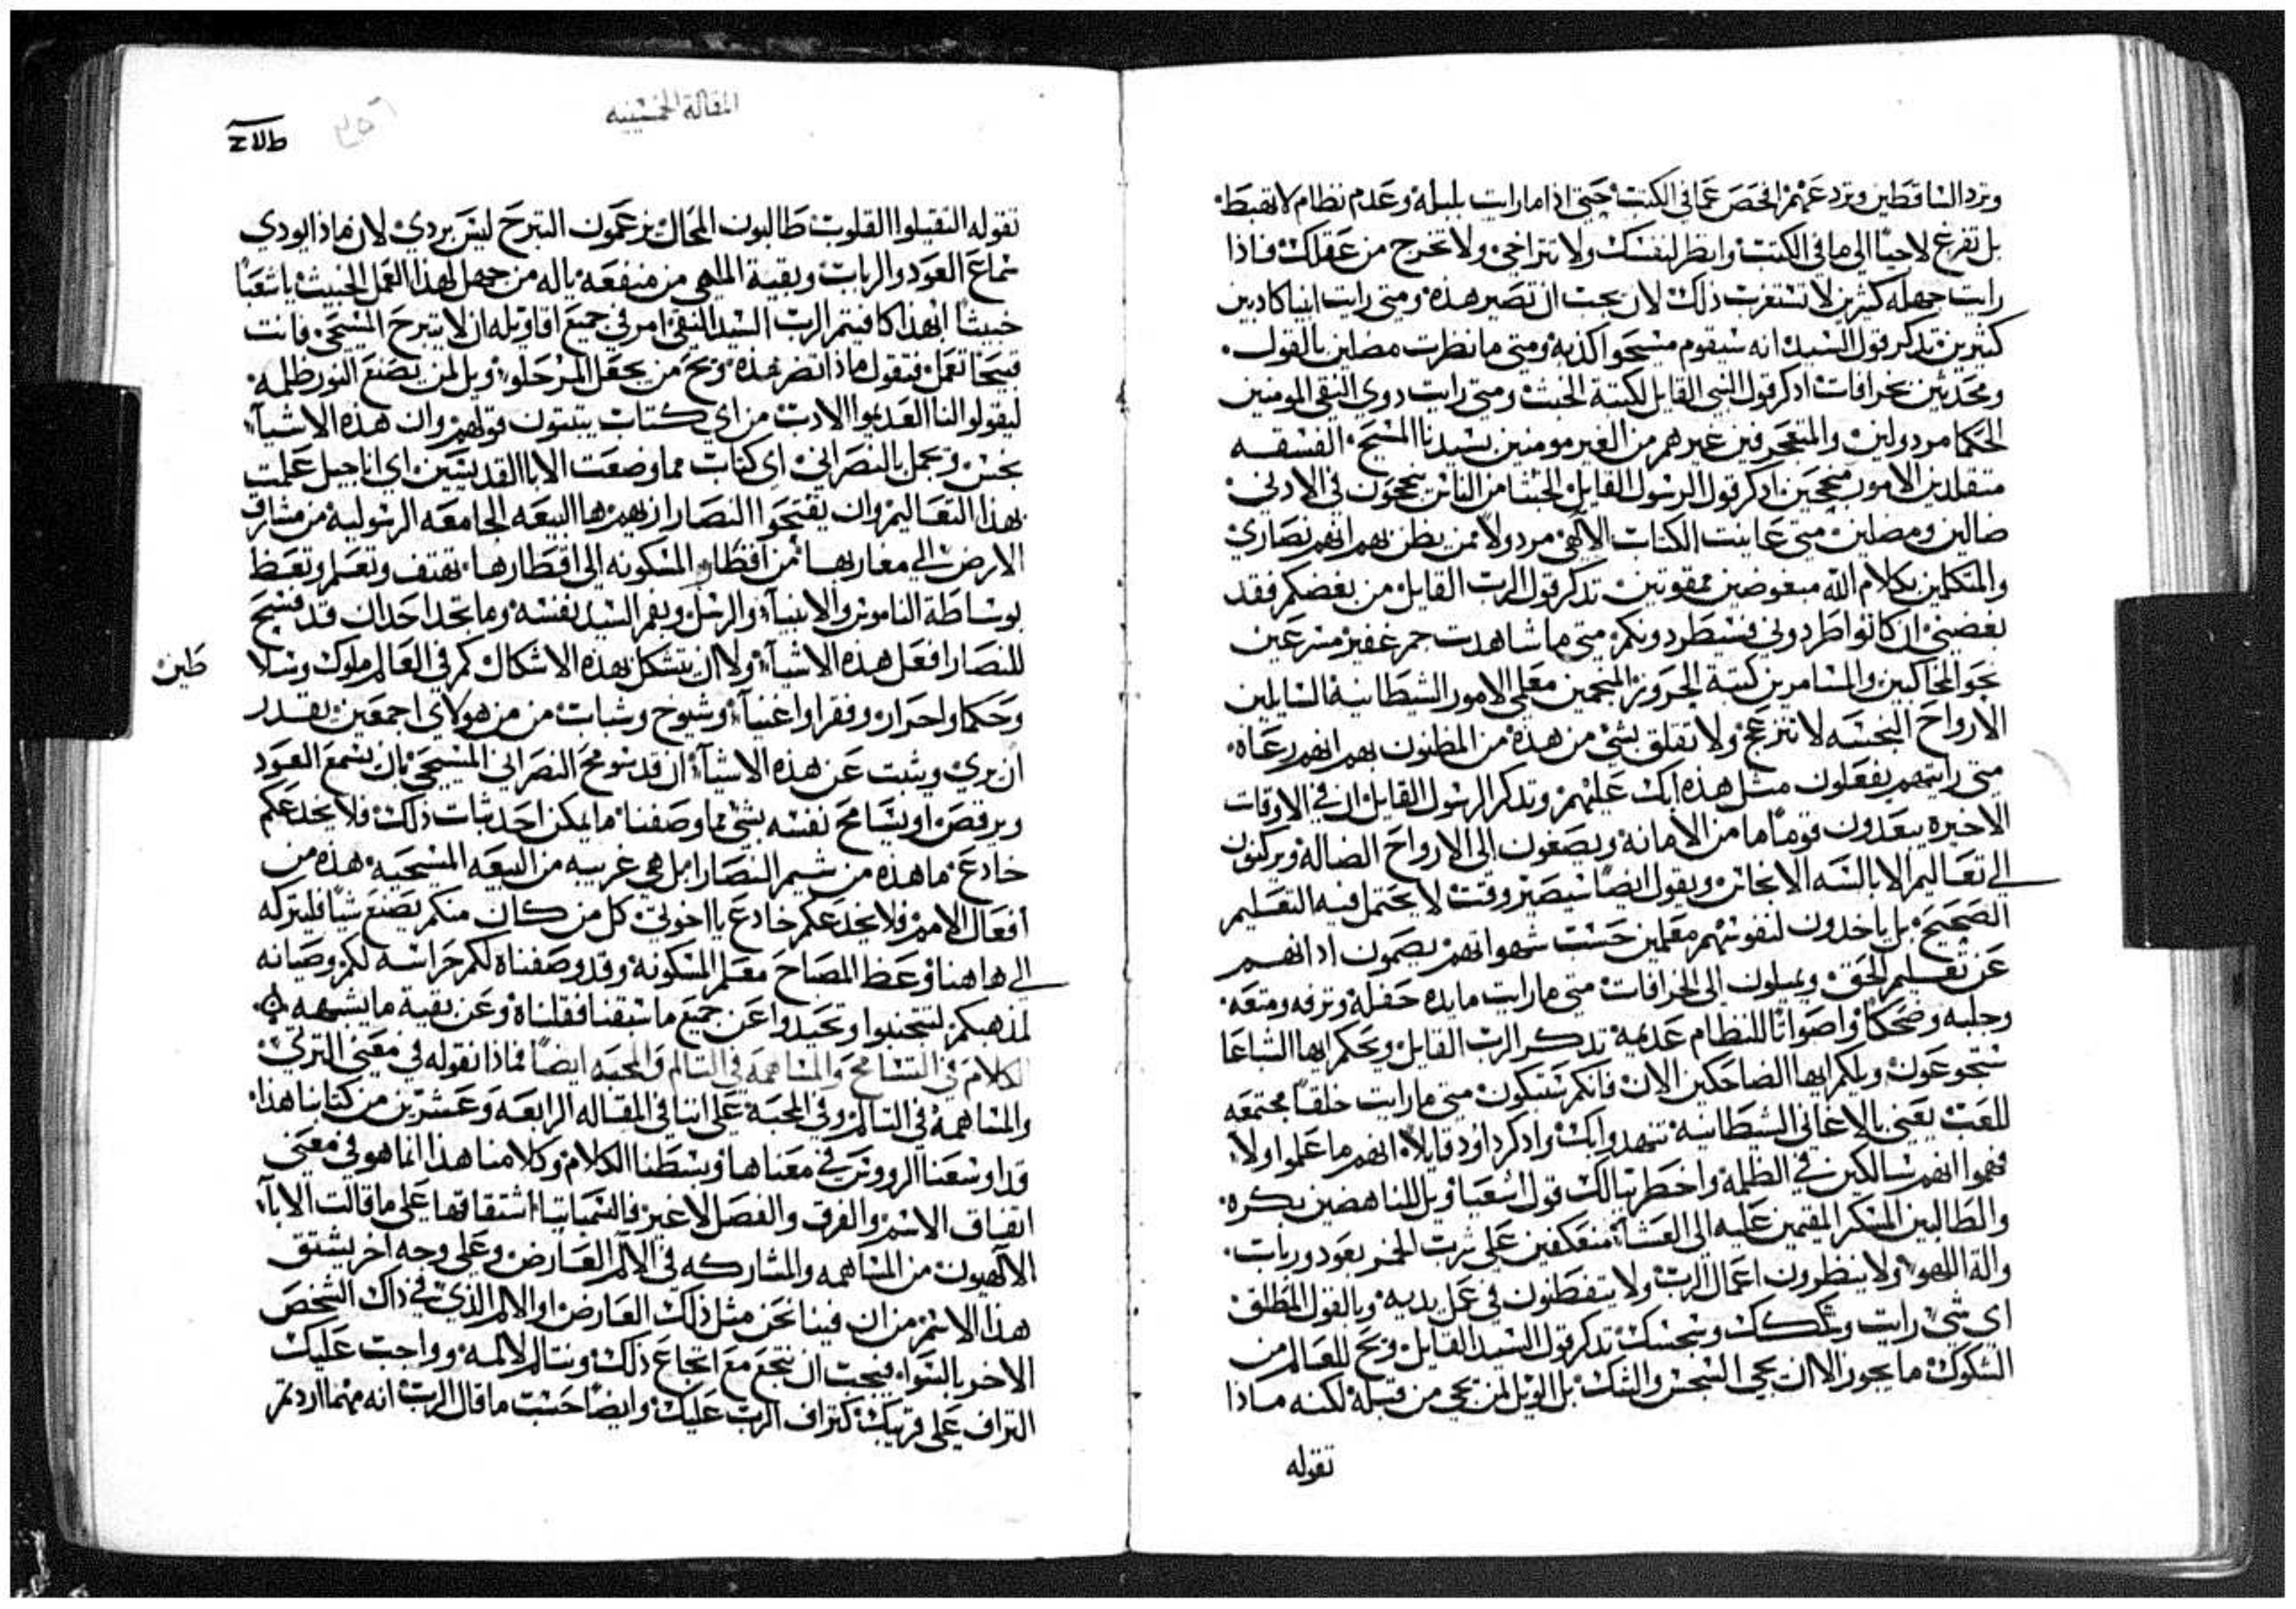 وترد الساقطين وتردعهم الفحص عما في الكتب حتي اذا ما رايت بلبله وعدم نظام لا تهبط
بل تفرغ لاحيًا الي ما في الكتب وانظر لنفسك ولا تتراخي ولا تخرج من عقلك فاذا
رايت جهله كثيرين لا تستغرب ذلك لان يجب ان تصير هذه ومتي رايت انبيا كادبين
كثيرين تدكر قول السيد انه سيقوم مسيحوا كذبه ومتي ما نظرت مضلين بالقول
ومحدثين بخرافات ادكر قول النبي القايل لكتبة الخبث ومتي رايت دوي التقي المومنين
الحكما مردولين والمتعجرفين غيرهم من الغير مومنين بسيدنا المسيح الفسقه
متقلدين الامور منجحين ادكر قول الرسول القايل الخبثا من الناس ينجحون في الادني
ضالين ومضلين متي عاينت الكتاب الالهي مردولاً ممن يظن بهم انهم نصاري
والمتكلمين بكلام الله مبغوضين ممقوتين تدكر قول الرب القايل من بغضكم فقد
بغضني ان كانوا طردوني فسيطردونكم متي ما شاهدت جم غفير مسرعين
نحو المحاكيين والمسامرين كتبة الحروز المنجمين معلمي الامور الشيطانية السايلين
الارواح النجسه لا تنزعج ولا تقلق بشي من هذه من المظنون بهم انهم رعاه
متي رايتهم يفعلون مثل هذه ابك عليهم وتدكر الرسول القايل ان في الاوقات
الاخيرة يبعدون قومًا ما من الامانه ويصغون الي الارواح الضالة ويركنون
الي تعاليم الابالسه الانجاس ويقول ايضًا سيصير وقت لا يحتمل فيه التعليم
الصحيح بل ياخدون لنفوسهم معلمين حسب شهواتهم يصمون ادانهم
عن تعليم الحق ويميلون الي الخرافات متي ما رايت مايده حفله وترفه ومتعه
وجلبه وضحكًا واصواتًا للنظام عديمه تدكر الرب القايل ويحكم ايها الشباعا
ستجوعون ويلكم ايها الضاحكين الان فانكم ستبكون متي ما رايت خلقًا مجتمعه
للعب يعني بالاغاني الشيطانيه تنهد وابك وادكر داود قايلاً انهم ما علموا ولا
فهموا انهم سالكين في الظلمه واخطر ببالك قول اشعيا ويل للناهضين بكره
والطالبين المسكر المقيمين عليه الي العشا منعكفين علي شرب الخمر بعود ورباب
والة اللهو ولا ينظرون اعمال الرب ولا يتفطنون في عمل يديه وبالقول المطلق
اي شي رايت وشككك وسجسك تدكر قول السيد القايل ويح للعالم من
الشكوك ما يجوز الا ان يجي السجس والشك بل الويل لمن يجي من قبله لكنه ماذا
تقوله
المقالة الخمسينيه
تقوله الثقيلوا القلوب طالبون المحال يزعمون التبرح ليس بردي لان ماذا يودي
سماع العود والرباب وبقية الملهي من منفعه ياله من جهل لهذا العمل الخبيث يا شعبًا
خبيثًا ابهذا كافيتم الرب السيد التقي امر في جميع اقاويله ان لا يتبرح المسيحي فانت
قبيحًا تعمل فتقول ماذا تضر هذه ويح من يجعل المر حلو ويل لمن يصنع النور ظلمه
ليقولوا لنا العديموا الادب من اي كتاب يثبتون قولهم وان هذه الاشيآ
يحسن ويجمل بالنصراني اي كتاب مما وضعت الابا القديسين اي اناجيل علمت
بهذا التعاليم وان يقتحوا النصارا بهم ها البيعه الجامعه الرسوليه من مشارق
الارض الي مغاربها من اقطار المسكونه الي اقطارها تهتف وتعلم وتعظ
بوساطة الناموس والانبيآ والرسل وبفم السيد نفسه وما تجد احدًا قد فسح
للنصارا فعل هذه الاشيآ ولا ان يتشكل بهذه الاشكال كم في العالم ملوك وسلا
طين
وحكما واحرار وفقرا واغنيآ وشيوخ وشباب من من هولاي اجمعين يقدر
ان يري ويثبت عن هذه الاشيآ ان قد سومح النصراني المسيحي بان يسمع العود
ويرقص او يسامح نفسه بشي مما وصفنا ما يمكن احد ثبات ذلك فلا يخدعكم
خادع ما هذه من شيم النصارا بل هي غريبه من البيعه المسيحيه هذه من
افعال الامم فلا يخدعكم خادع يا اخوتي كل من كان منكم يصنع شيًا فليتركه
الي هاهنا وعظ المصباح معلم المسكونه وقد وصفناه لكم حراسه لكم وصيانه
لمذهبكم لتتجنبوا وتحيدوا عن جميع ما سبقنا فقلناه وعن بقية ما يشبهه
الكلام في التسامح والمساهمه في التالم والمحبه ايضًا فماذا نقوله في معني الترثي
والمساهمه في التالم وفي المحبة علي اننا في المقاله الرابعه وعشرين من كتابنا هذا
قد اوسعنا الرووس في معناها وبسطنا الكلام وكلامنا هذا انما هو في معني
اتفاق الاسم والفرق والفصل لا غير فالسمباثيا اشتقاقها علي ما قالت الابآ
الالهيون من المساهمه والمشاركه في الالم العارض وعلي وجه اخر يشتق
هذا الاسم من ان فينا نحن مثل ذلك العارض او الالم الذي في داك الشخص
الاخر بالسوا فيجب ان نتجع مع اتجاع ذلك ونتالم لالمه وواجب عليك
التراف علي قريبك كتراف الرب عليك وايضًا حسب ما قال الرب انه مهما اردتم